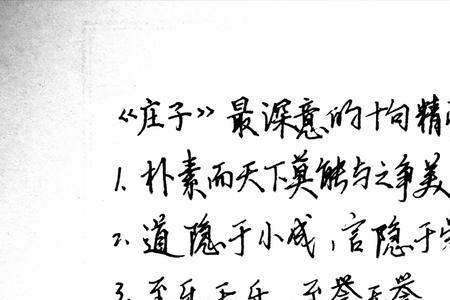 《庄子》最深意的十句精
1. 朴素而天下莫能与之争美
2. 道隐于小成，言隐于
3. 至乐无乐，至誉无誉